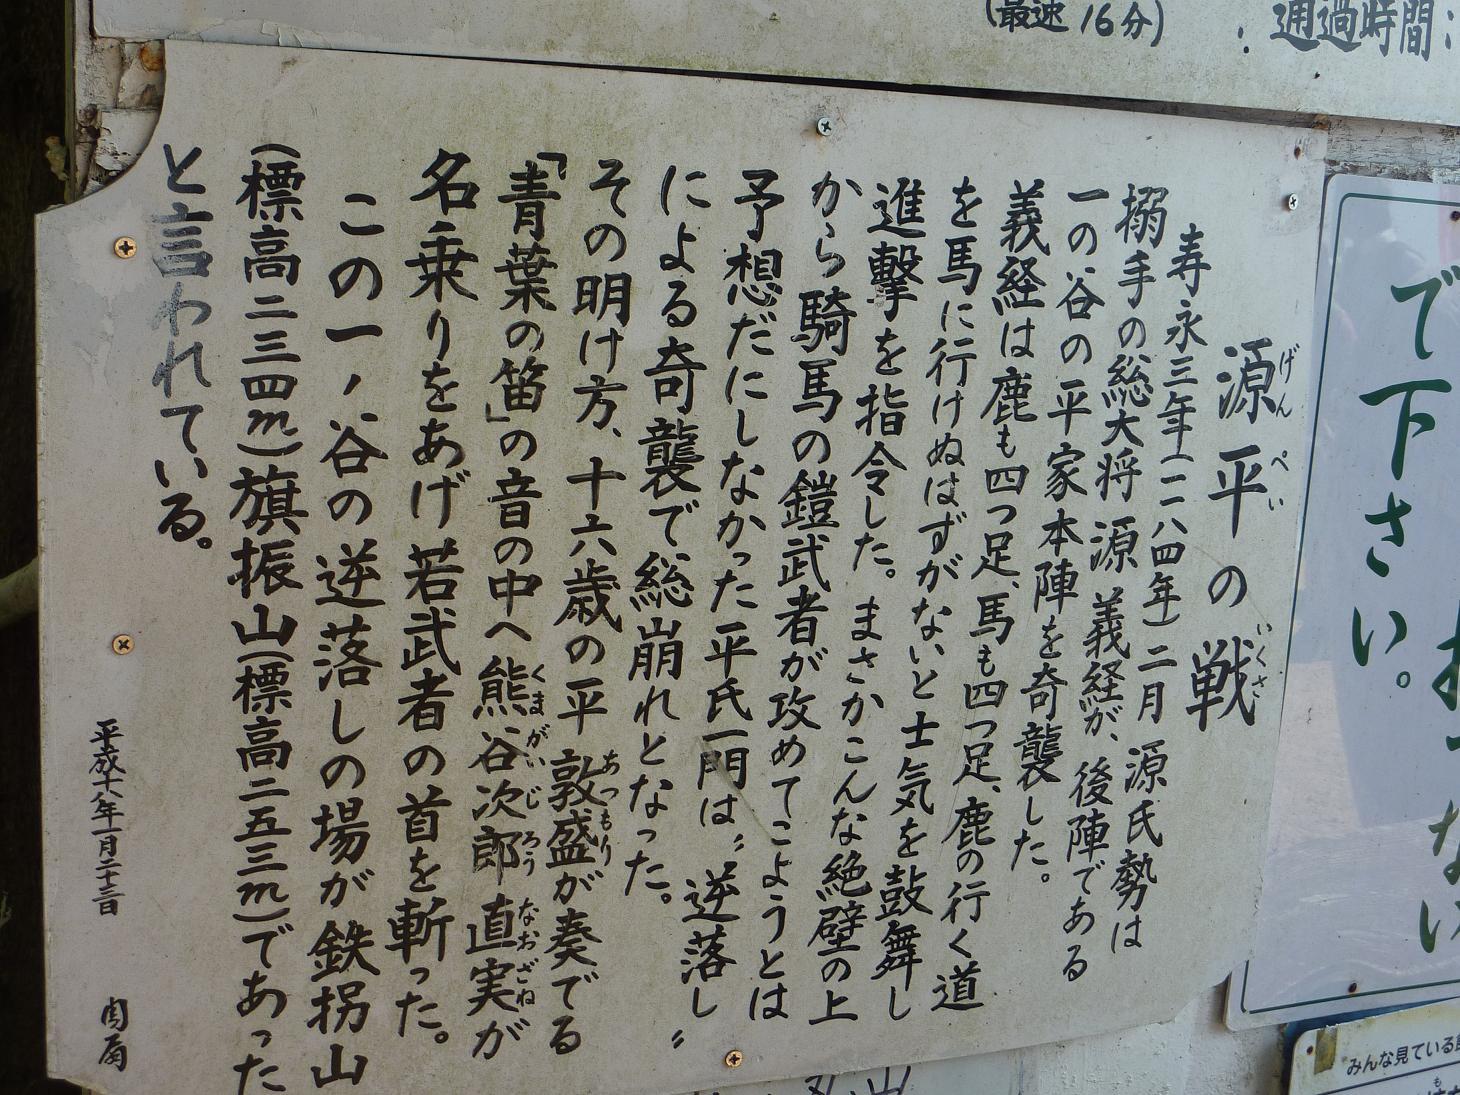 (最速16分)
通過時間:
源平の戦
げん
ぺい
いくさ
寿永三年(一一八四年)二月 源氏勢は
搦手の総大将 源 義経が、後陣である
一の谷の平家本陣を奇襲した。
義経は鹿も四つ足、馬も四つ足、鹿の行く道
を馬に行けぬはずがないと士気を鼓舞し
進撃を指令した。まさかこんな絶壁の上
から騎馬の鎧武者が攻めてこようとは
予想だにしなかった平氏一門は〝逆落し〟
による奇襲で総崩れとなった。
その明け方、十六歳の平 敦盛が奏でる
あつもり
「青葉の笛」の音の中へ熊谷次郎直実が
くまがい じろう なおざね
名乗りをあげ若武者の首を斬った。
この一ノ谷の逆落しの場が鉄拐山
(標高二三四m)旗振山(標高二五三m)であった
と言われている。
平成十八年一月二十三日
で下さい。
みんな見ている